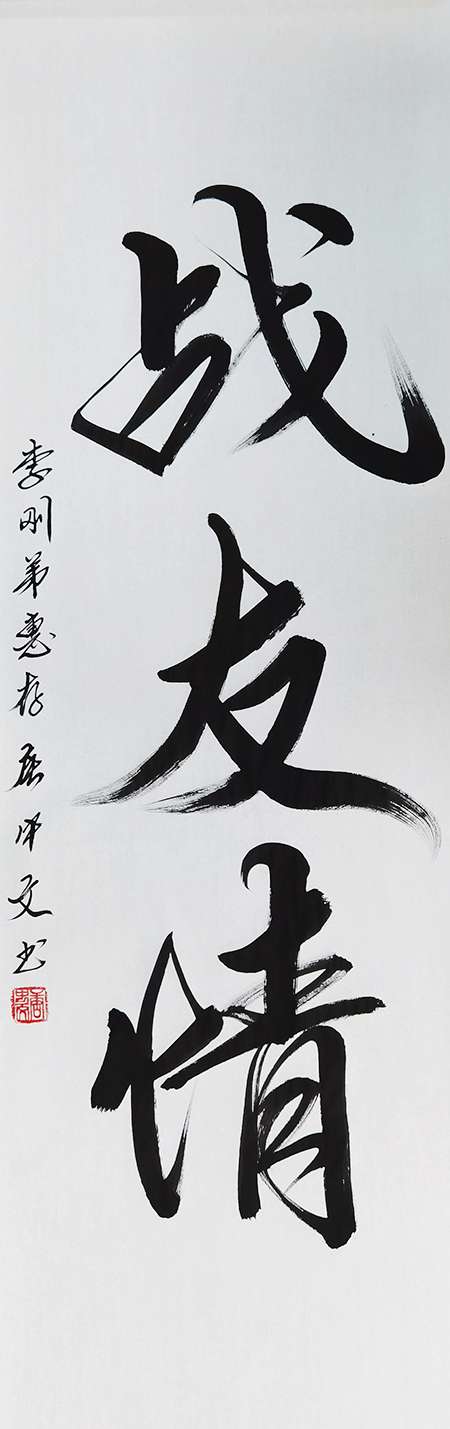 战友情
李刚弟惠存 唐 文书